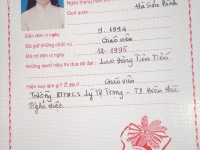 Ngày tháng năm sinh
Quê quán Hà Sơn Bình
Đến đơn vị ngày 9.1994
Đã giữ những chức vụ Giáo viên
Đi ngày 12.1995
Những danh hiệu thi đua đã đạt: Lao động Tiên Tiến
Hiện nay làm gì? Ở đâu? Giáo viên
Trường PTTHCS Lý Tự Trọng - TX Biên Hòa
Nghỉ việc